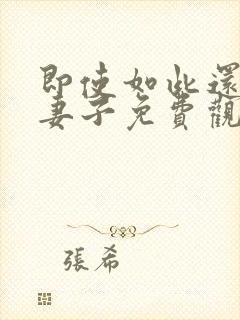 即使如此還
妻子免費觀
張希